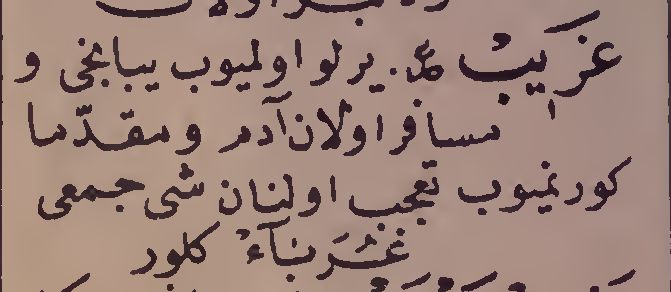 غريب ع. يرلو اولميوب يبانجى و
مسافر اولان آدم و مقدّما
كورنميوب تعجب اولنان شى جمعى
غُرَبَآءْ كلور